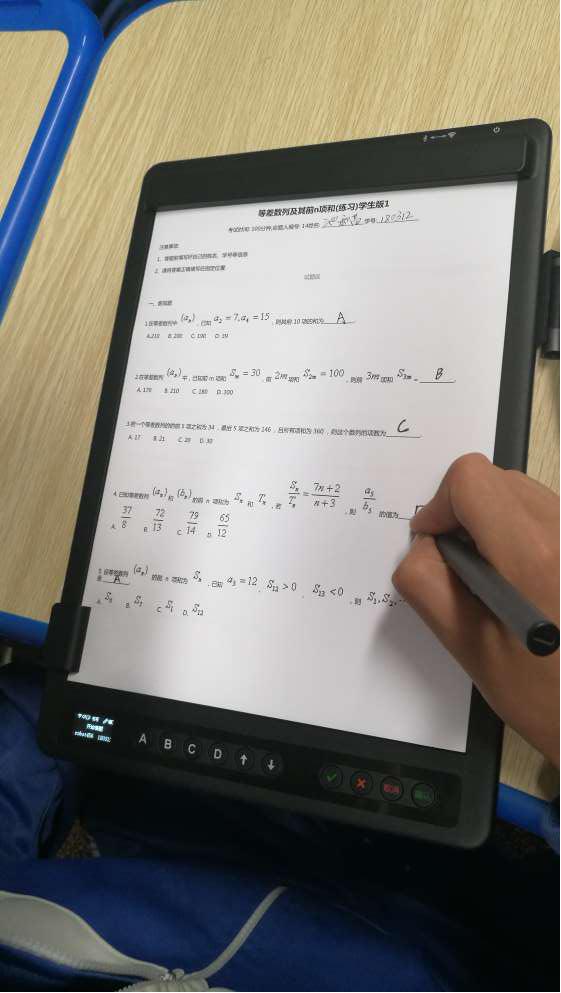 等差数列及其前n项和(练习)学生版1
考试时间: 100分钟,命题人编号: 14姓名: 学号: 180312
注意事项:
1、答题前填写好自己的姓名、学号等信息
2、请将答案正确填写在指定位置
试题区
一、单选题
1.在等差数列中 {aₙ} ,已知 a₂ = 7, a₄ = 15 ,则其前 10 项的和为 A .
A.210 B. 200 C. 190 D. 39
2.在等差数列 {aₙ} 中,已知前 m 项和 Sₘ = 30 ,前 2m 项和 S₂ₘ = 100 ,则前 3m 项和 S₃ₘ = B .
A. 170 B. 210 C. 180 D. 300
3.若一个等差数列的前 3 项之和为 34 ,最后 3 项之和为 146 ,且所有项和为 360 ,则这个数列的项数为 C
A. 17 B. 21 C. 20 D. 30
4.已知等差数列 {aₙ} 和 {bₙ} 的前 n 项和为 Sₙ 和 Tₙ ,若 Sₙ/Tₙ = 7n+2/n+3 ,则 a₅/b₅ 的值为
A. 37/8 B. 72/13 C. 79/14 D. 65/12
5. 设等差数列 {aₙ} 的前 n 项和为 Sₙ ,已知 a₃ = 12 , S₁₂ > 0 , S₁₃ < 0 ,则 S₁, S₂, ··
是 A
A. S₆ B. S₇ C. S₁ D. S₁₂
A B C D ↑ ↓ ✓ ✗ 取消 确认